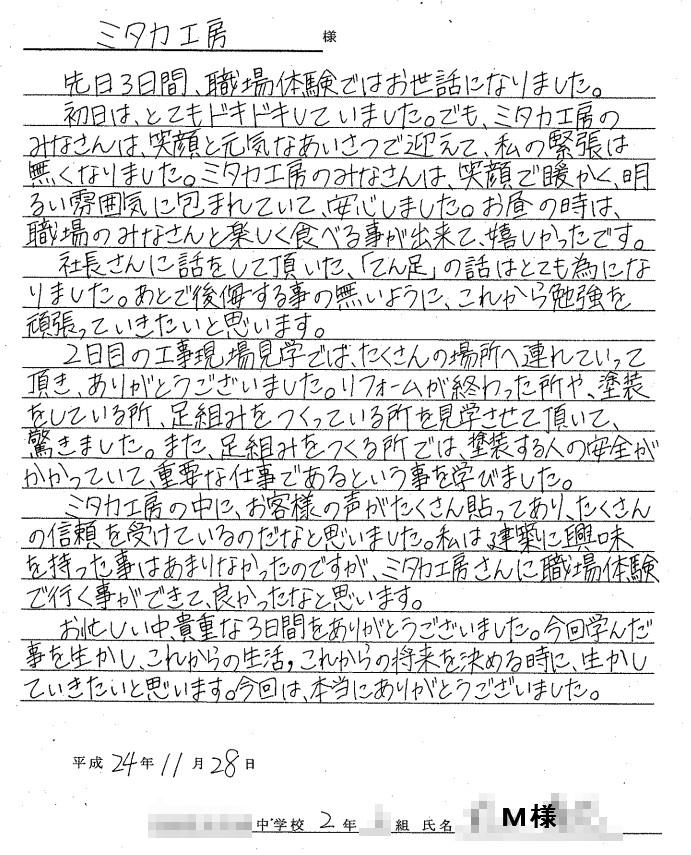 ミタカ工房 様
先日3日間、職場体験ではお世話になりました。
初日は、とてもドキドキしていました。でも、ミタカ工房の
みなさんは、笑顔と元気なあいさつで迎えて、私の緊張は
無くなりました。ミタカ工房のみなさんは、笑顔で暖かく、明
るい雰囲気に包まれていて、安心しました。お昼の時は、
職場のみなさんと楽しく食べる事が出来て、嬉しかったです。
社長さんに話をして頂いた、「てん足」の話はとても為にな
りました。あとで後悔する事の無いように、これから勉強を
頑張っていきたいと思います。
2日目の工事現場見学では、たくさんの場所へ連れていって
頂き、ありがとうございました。リフォームが終わった所や、塗装
をしている所、足組みをつくっている所を見学させて頂いて、
驚きました。また、足組みをつくる所では、塗装する人の安全が
かかっていて、重要な仕事であるという事を学びました。
ミタカ工房の中に、お客様の声がたくさん貼ってあり、たくさん
の信頼を受けているのだなと思いました。私は建築に興味
を持った事はあまりなかったのですが、ミタカ工房さんに職場体験
で行く事ができて、良かったなと思います。
お忙しい中、貴重な3日間をありがとうございました。今回学んだ
事を生かし、これからの生活，これからの将来を決める時に、生かし
ていきたいと思います。今回は、本当にありがとうございました。
平成 24年 11月 28日
中学校 2年 組 氏名 M様